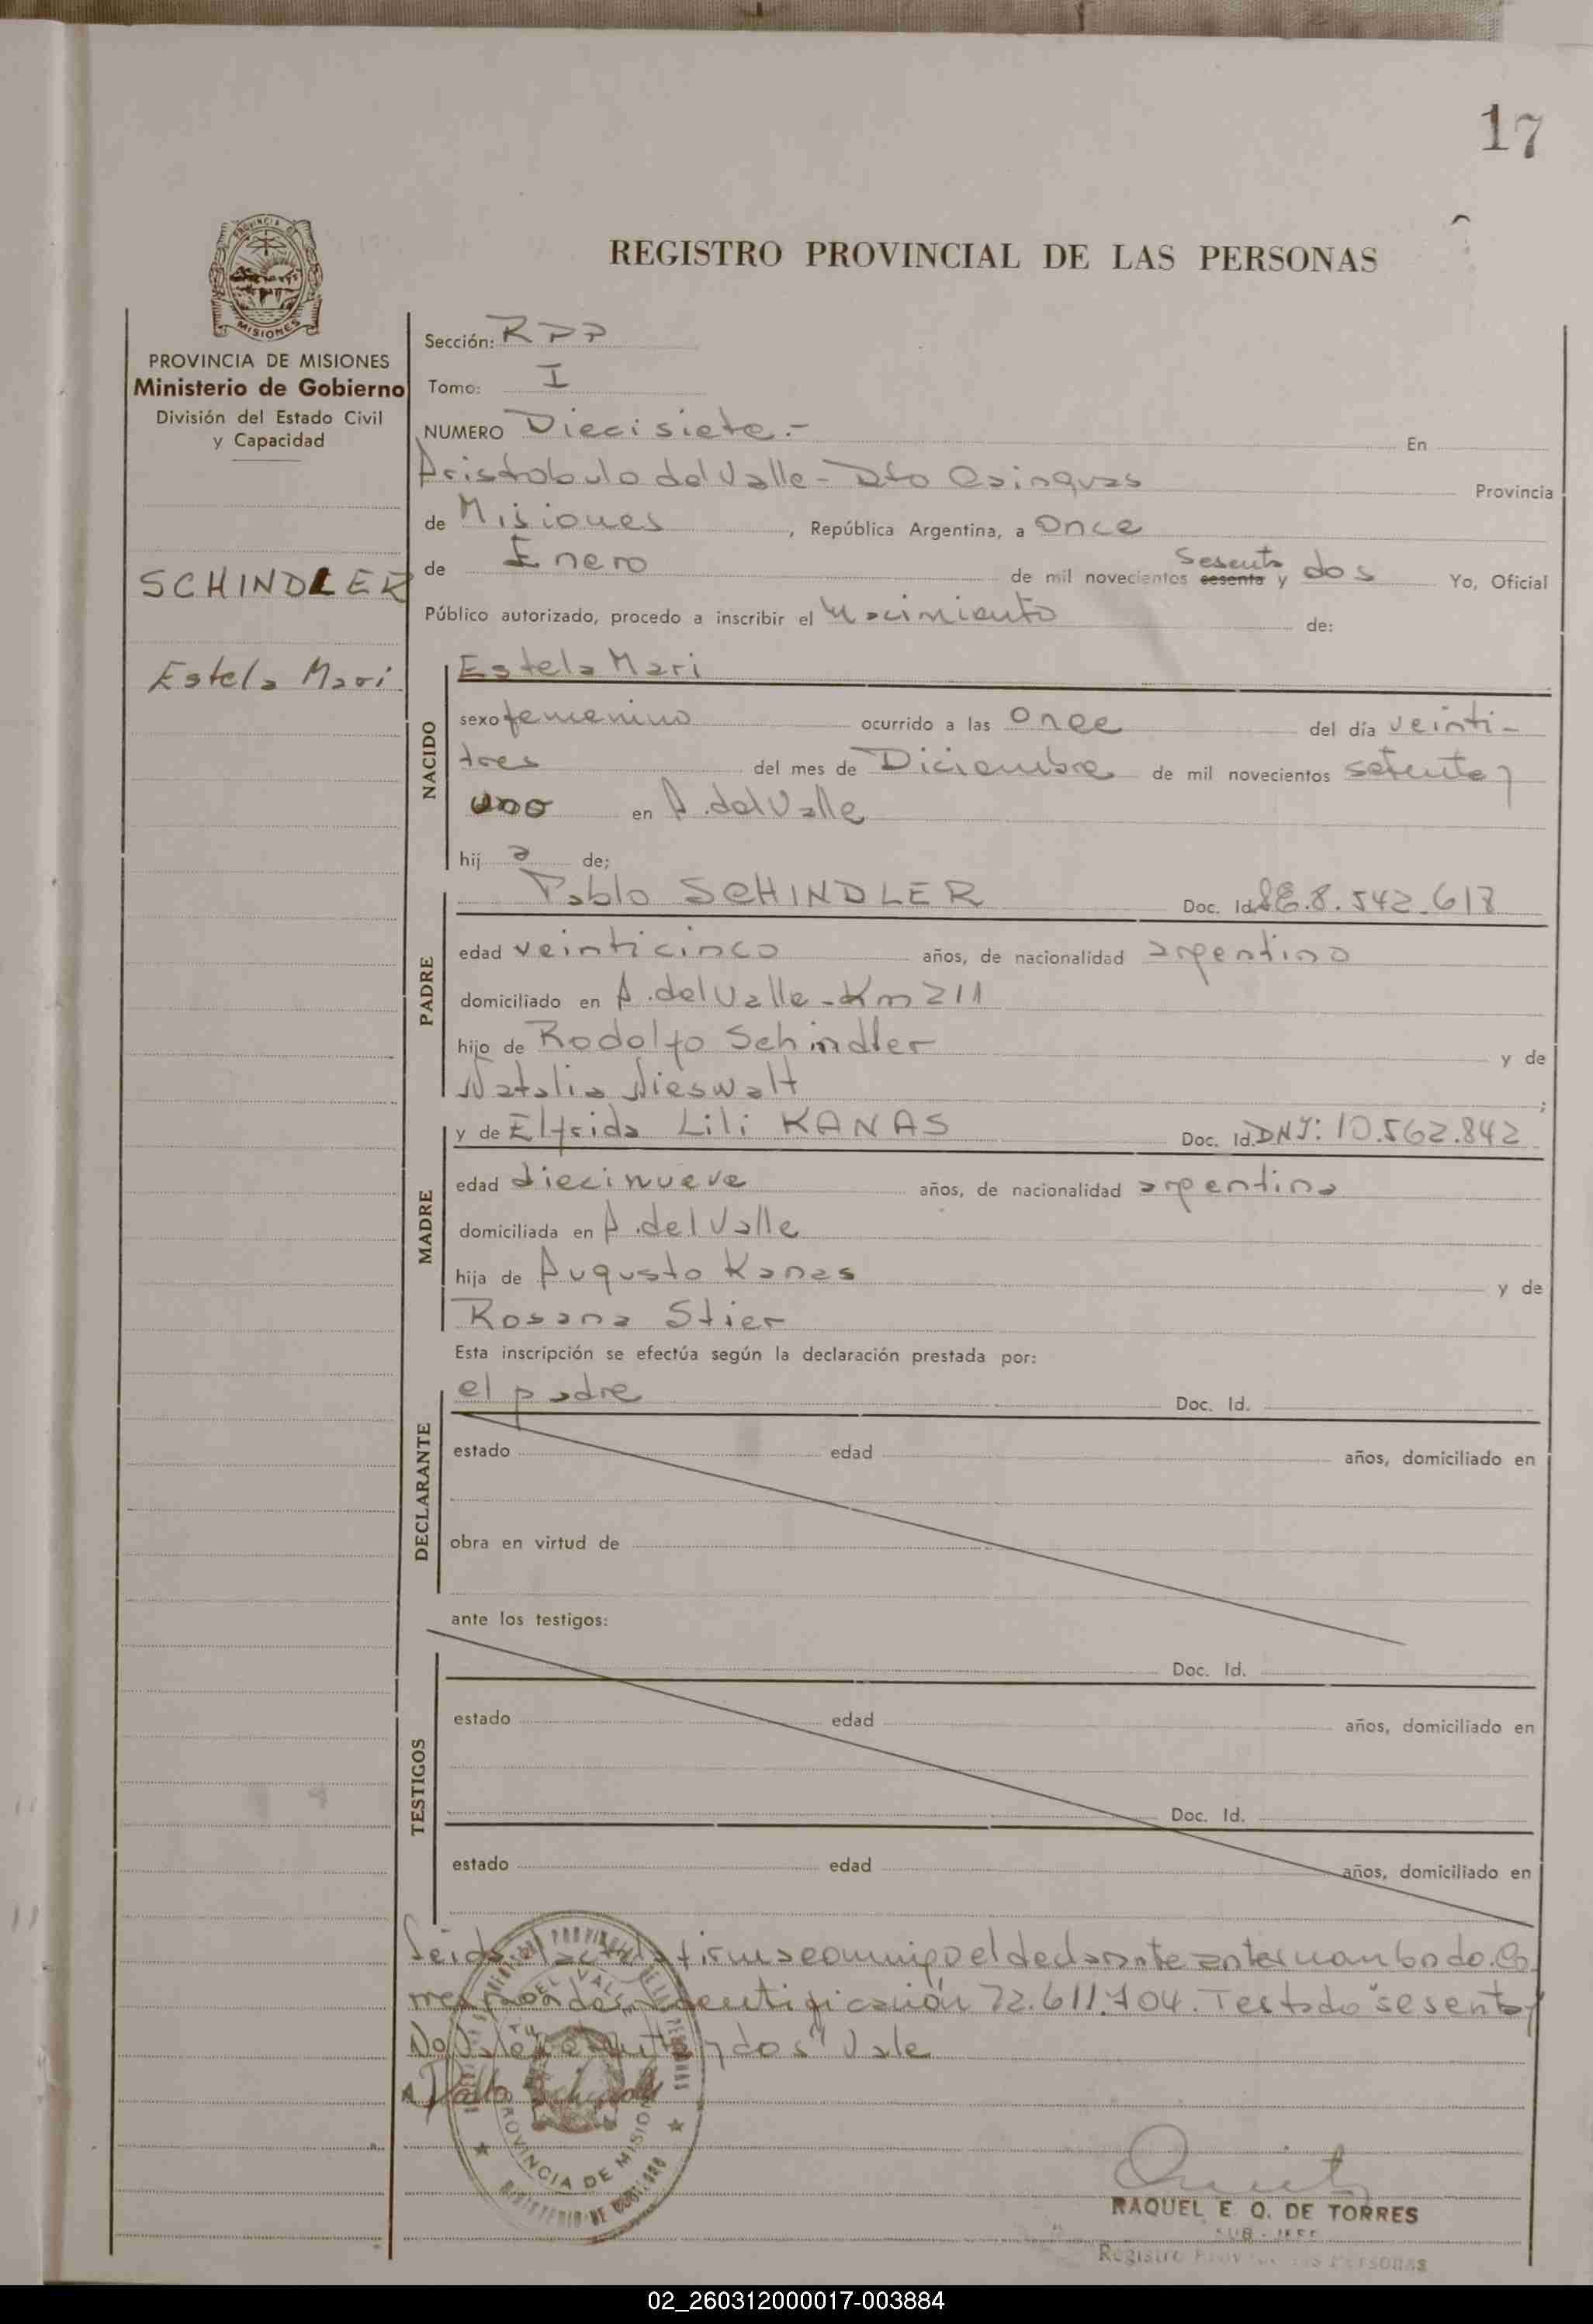 17
REGISTRO PROVINCIAL DE LAS PERSONAS
PROVINCIA DE
MISIONES
PROVINCIA DE MISIONES
Ministerio de Gobierno
División del Estado Civil
y Capacidad
SCHINDLER
Estela Mari
Sección: RPP
Tomo: I
NUMERO Diecisiete.- En
Aristobulo del Valle - Dto Cainguas Provincia
de Misiones, República Argentina, a Once
de Enero de mil novecientos sesenta y dos Yo, Oficial
Público autorizado, procedo a inscribir el nacimiento de:
NACIDO
Estela Mari
sexo femenino ocurrido a las once del día veinti-
tres del mes de Diciembre de mil novecientos setenta y
uno en A. del Valle
hija de;
PADRE
Pablo SCHINDLER Doc. Id. 8.542.617
edad veinticinco años, de nacionalidad argentino
domiciliado en A. del Valle - Km 211
hijo de Rodolfo Schindler y de
Natalia Nieswalt ;
MADRE
y de Elfrida Lili KANAS Doc. Id. DNI: 10.562.842
edad diecinueve años, de nacionalidad argentina
domiciliada en A. del Valle
hija de Augusto Kanas y de
Rosana Stier
Esta inscripción se efectúa según la declaración prestada por:
DECLARANTE
el padre Doc. Id.
estado edad años, domiciliado en
obra en virtud de
ante los testigos:
TESTIGOS
Doc. Id.
estado edad años, domiciliado en
Doc. Id.
estado edad años, domiciliado en
Leida el acta la firma conmigo el declarante
identificación 22.611.704. Testado "sesenta y
No Vale y dos" Vale
Pablo
PROVINCIA DE MISIONES
RAQUEL E. Q. DE TORRES
SUB-JEFE
Registro Personas
02_260312000017-003884